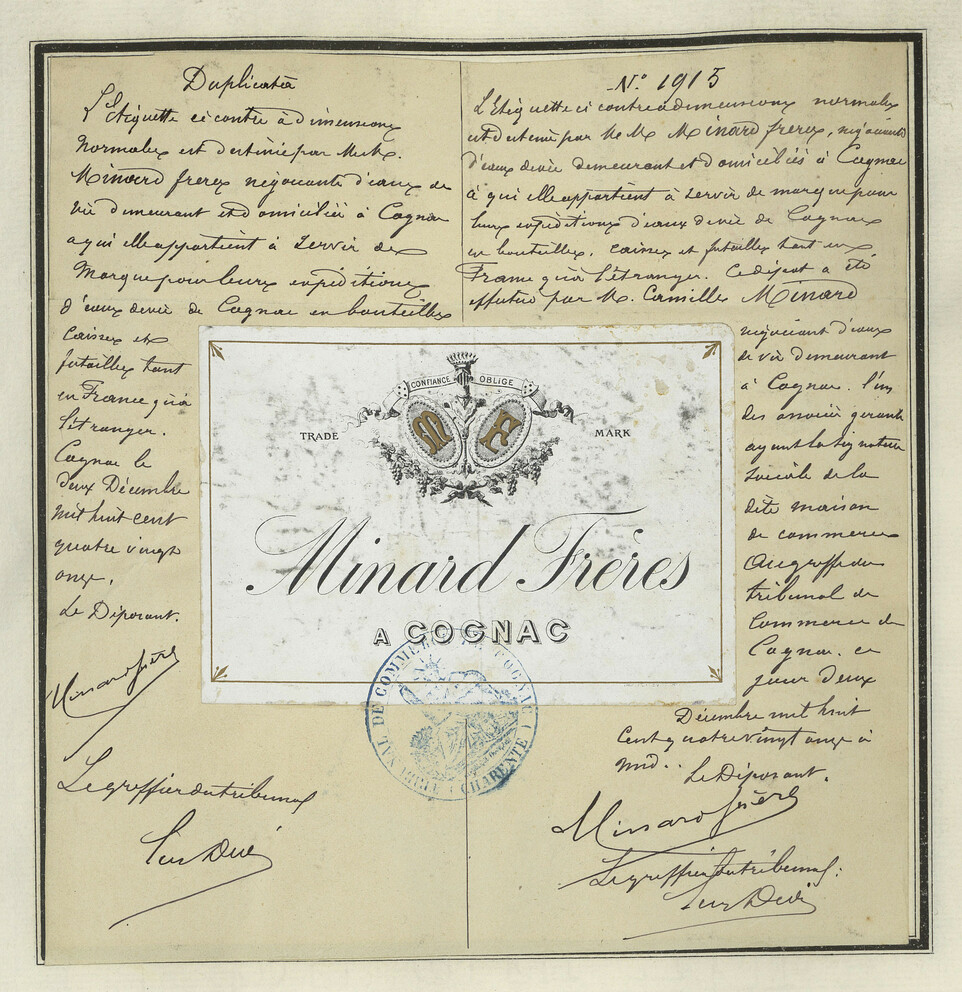 Duplicata
L'Etiquette ci contre à dimensions
Normales est destinée par M.M.
Minard frères négociants d'eaux de
vie demeurant et domiciliés à Cognac
a qui elle appartient à servir de
Marque pour leurs expéditions
d'eaux de vie de Cognac en bouteilles
Caisses et
futailles tant
en France qu'à
l'étranger.
Cognac le
deux Décembre
mil huit cent
quatre vingt
onze.
Le Déposant.
Minard frères
Le greffier du tribunal
No 1915
L'Etiquette ci contre à dimensions normales
est destinée par M.M. Minard frères, négociants
d'eaux de vie demeurant et domiciliés à Cognac
à qui elle appartient à servir de marque pour
leurs expéditions d'eaux de vie de Cognac
en bouteilles, caisses et futailles tant en
France qu'à l'étranger. Ce dépot a été
effectué par M. Camille Minard
négociant d'eaux
de vie demeurant
à Cognac. l'un
des associés gérants
ayant la signature
sociale de la
dite maison
de commerce
Au greffe du
tribunal de
Commerce de
Cognac. ce
jour deux
Décembre mil huit
Cent quatre vingt onze à
midi.
Le Déposant.
Minard frères
Le greffier du tribunal.
CONFIANCE OBLIGE
TRADE MARK
M F
Minard Frères
A COGNAC
DE COMMERCE DE COGNAC
(CHARENTE)